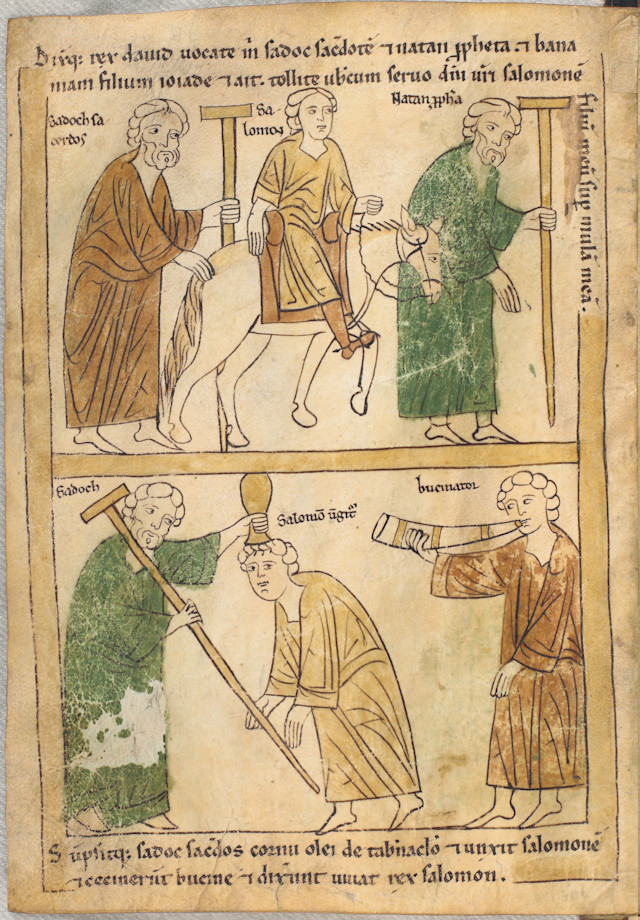 Dixitq; rex dauid uocate m̄ sadoc sac̄dotē ⁊ natan ꝓpheta ⁊ bana
niam filium ioiade ⁊ ait. tollite uob̄cum seruos dn̄i ur̄i salomonē
filiū meū sup̄ mulā meā.
Sadoch sa
cerdos
Sa
lomon
Natan ꝓph̄a
Sadoch
Salomō
bucinator
Sūpsitq; sadoc sac̄dos cornu olei de tab̄naclo ⁊ unxit salomonē
⁊ cecinerūt bucine ⁊ dixunt uiuat rex salomon.